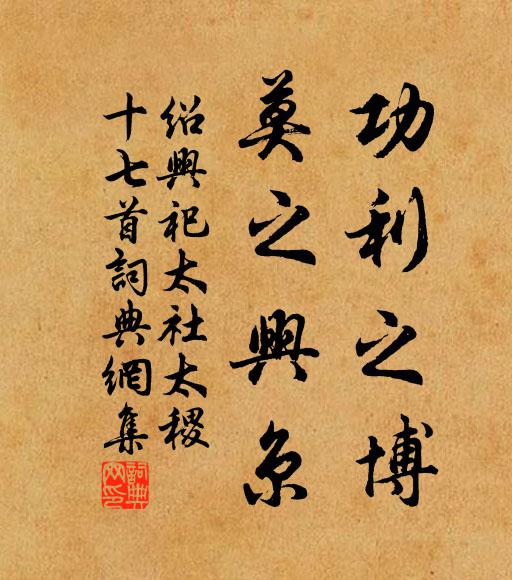 功利之博
莫之興京
紹興祀太社太稷
十七首詞典網集
詞典網印